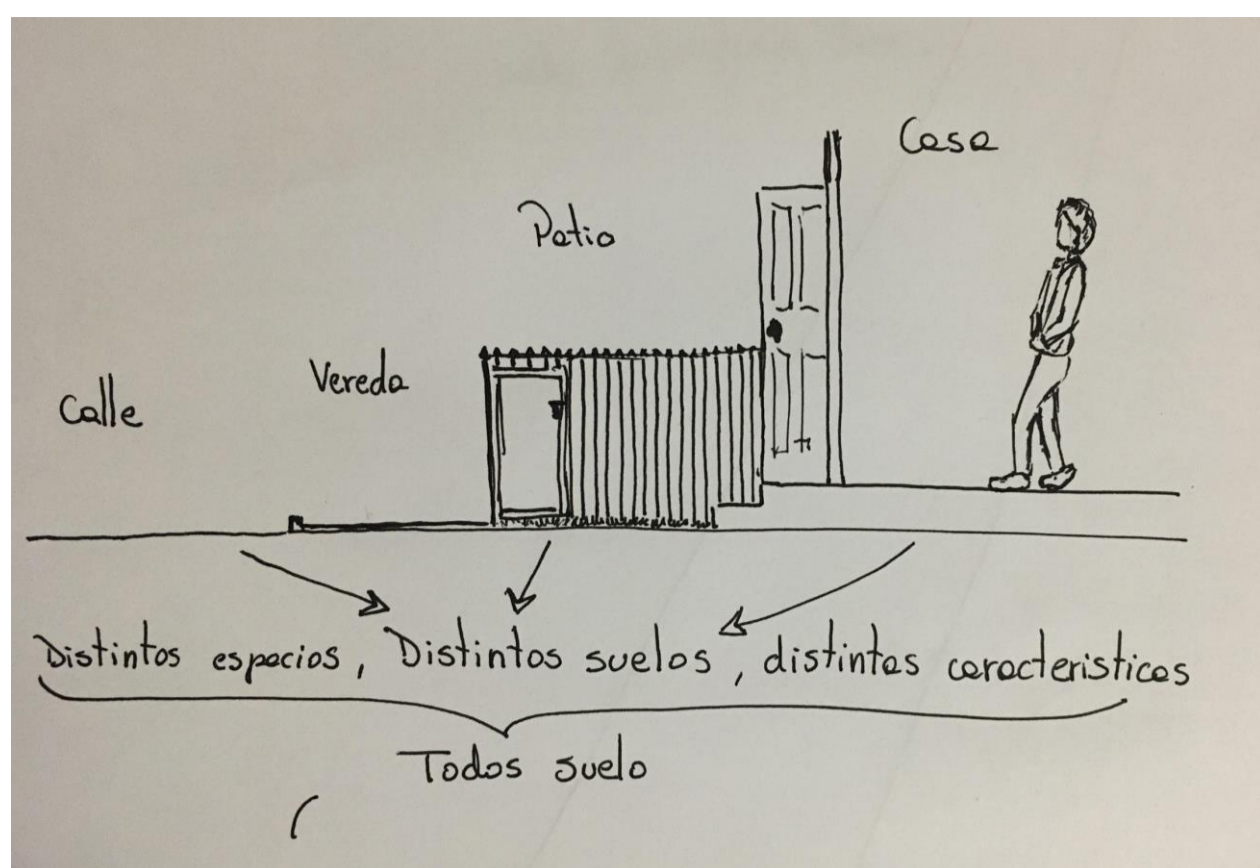 Casa
Patio
Vereda
Calle
Distintos espacios, Distintos suelos, distintas caracteristicas
Todos suelo